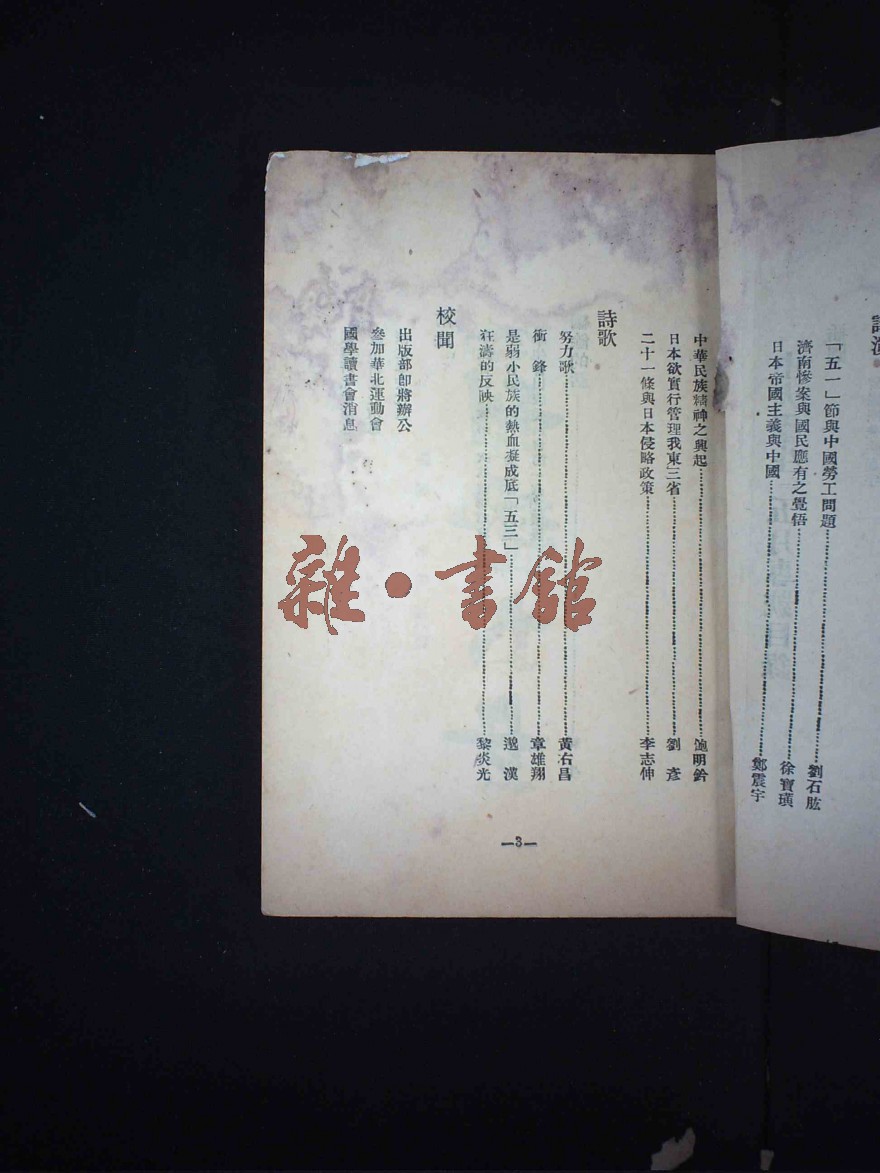 講演
「五一」節與中國勞工問題……劉石肱
濟南慘案與國民應有之覺悟……徐寶璜
日本帝國主義與中國……鄭震宇
中華民族精神之興起……鮑明鈐
日本欲實行管理我東三省……劉彥
二十一條與日本侵略政策……李志伸
詩歌
努力歌……黃右昌
衝鋒……章雄翔
是弱小民族的熱血凝成底「五三」……邈漢
狂濤的反映……黎炎光
校聞
出版部卽將辦公
參加華北運動會
國學讀書會消息
—3—
雜·書館